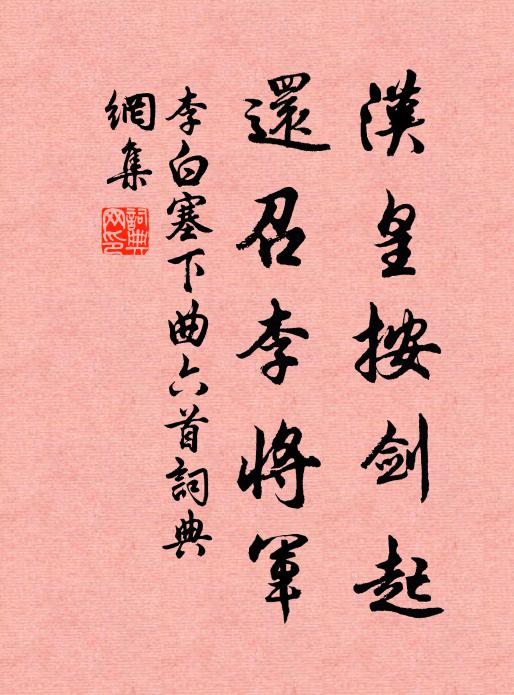 漢皇按剑起
還召李将軍
李白塞下曲六首詞典
網集
詞典网印